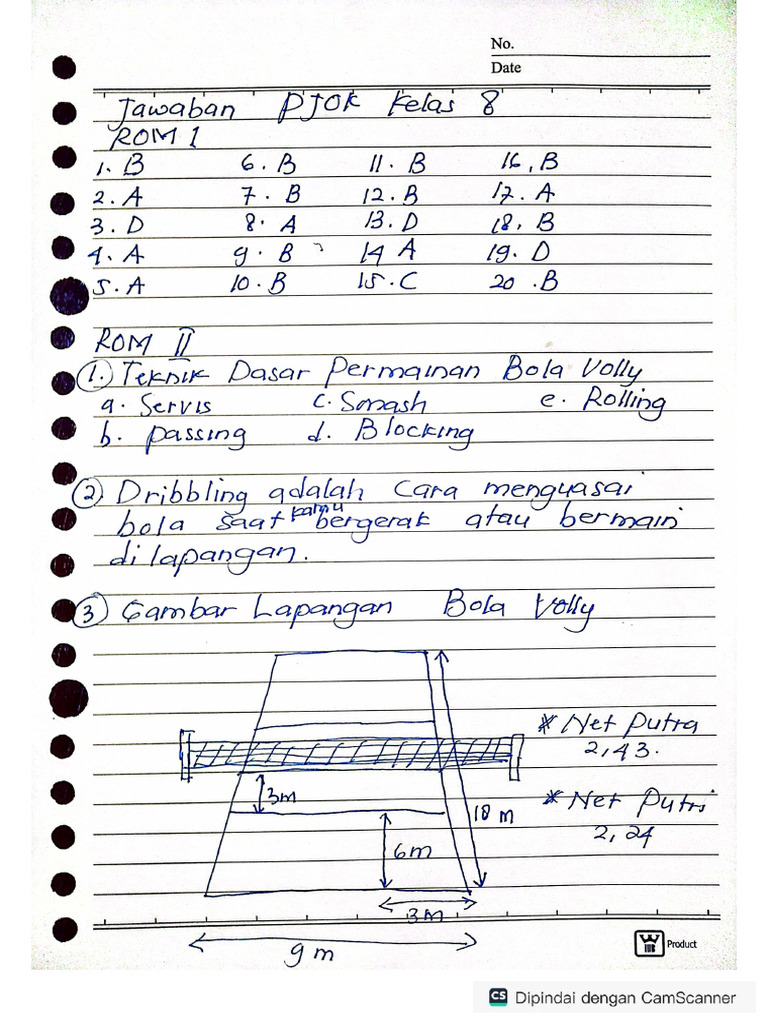 No.
Date
Jawaban PJOK Kelas 8
ROM 1
1. B 6. B 11. B 16, B
2. A 7. B 12. B 17. A
3. D 8. A 13. D 18, B
4. A 9. B 14 A 19. D
5. A 10. B 15. C 20 .B
ROM II
1. Teknik Dasar Permainan Bola Volly
a. Servis c. Smash e. Rolling
b. passing d. Blocking
2) Dribbling adalah cara menguasai
bola saat kamu bergerak atau bermain
di lapangan.
3) Gambar Lapangan Bola Volly
* Net Putra
2,43.
3m
* Net Putri
18 m
2,24
6m
3m
9 m
WB Product
CS Dipindai dengan CamScanner